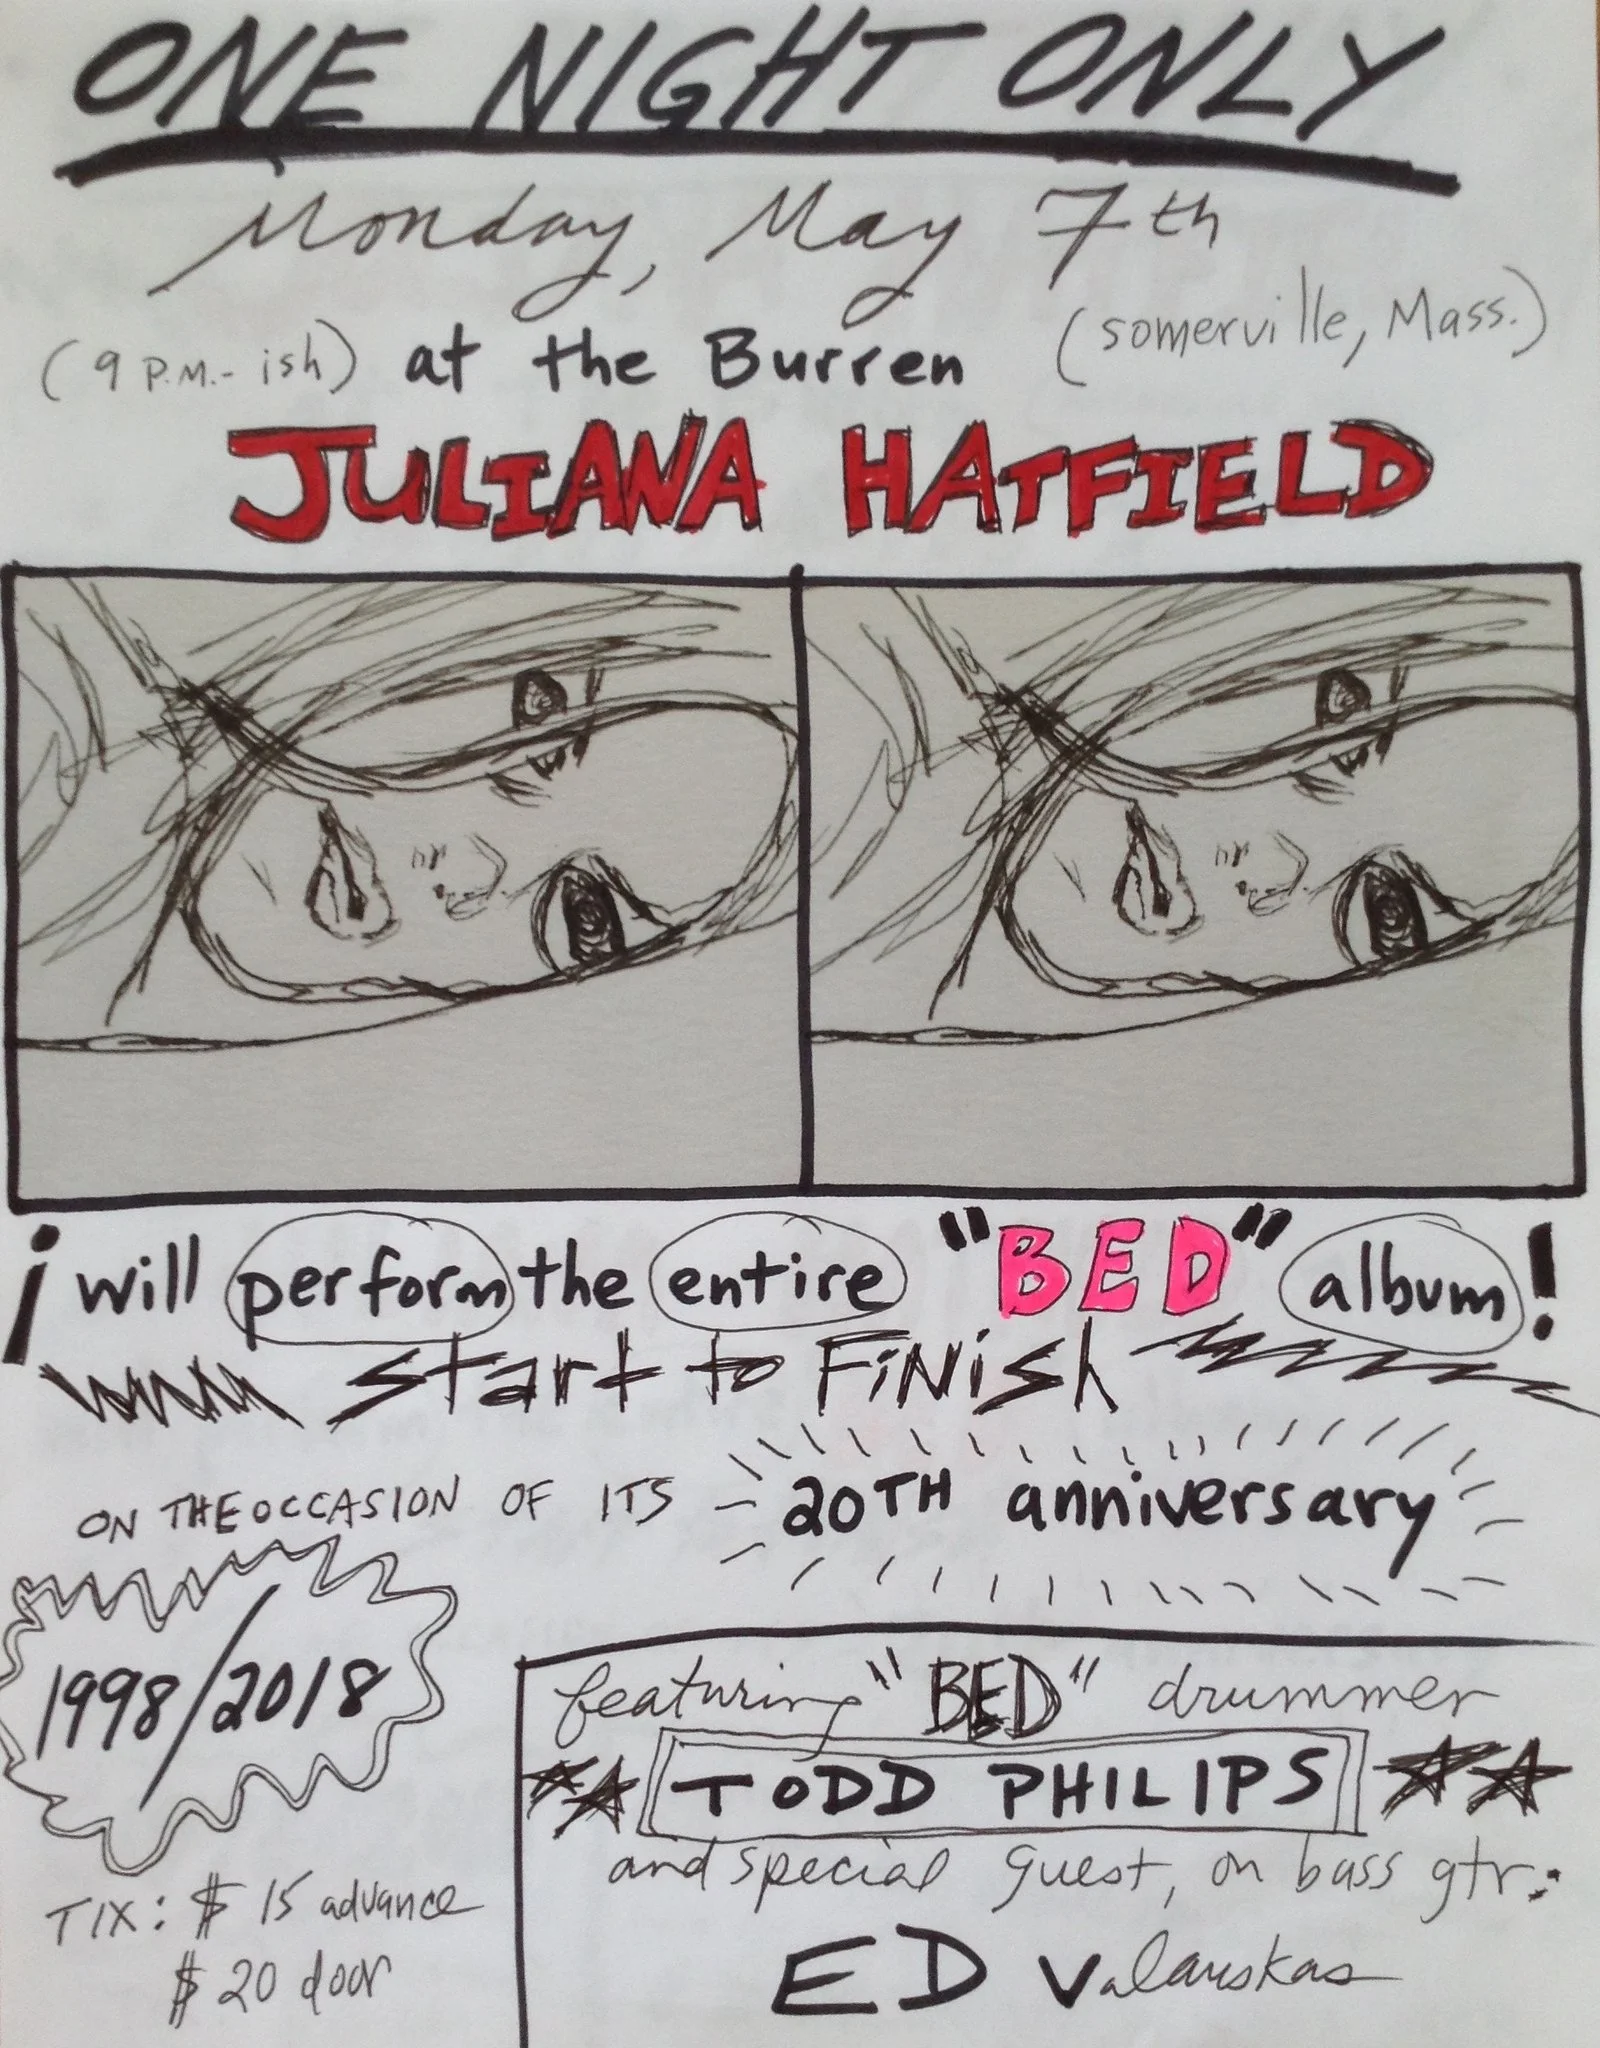 ONE NIGHT ONLY
Monday, May 7th
(9 P.M.-ish) at the Burren (somerville, Mass.)
JULIANA HATFIELD
i will perform the entire "BED" album!
start to FiNish
ON THE OCCASION OF ITS 20TH anniversary
1998/2018
TIX: $15 advance
$20 door
featuring "BED" drummer
TODD PHILIPS
and special guest, on bass gtr:
ED Valauskas